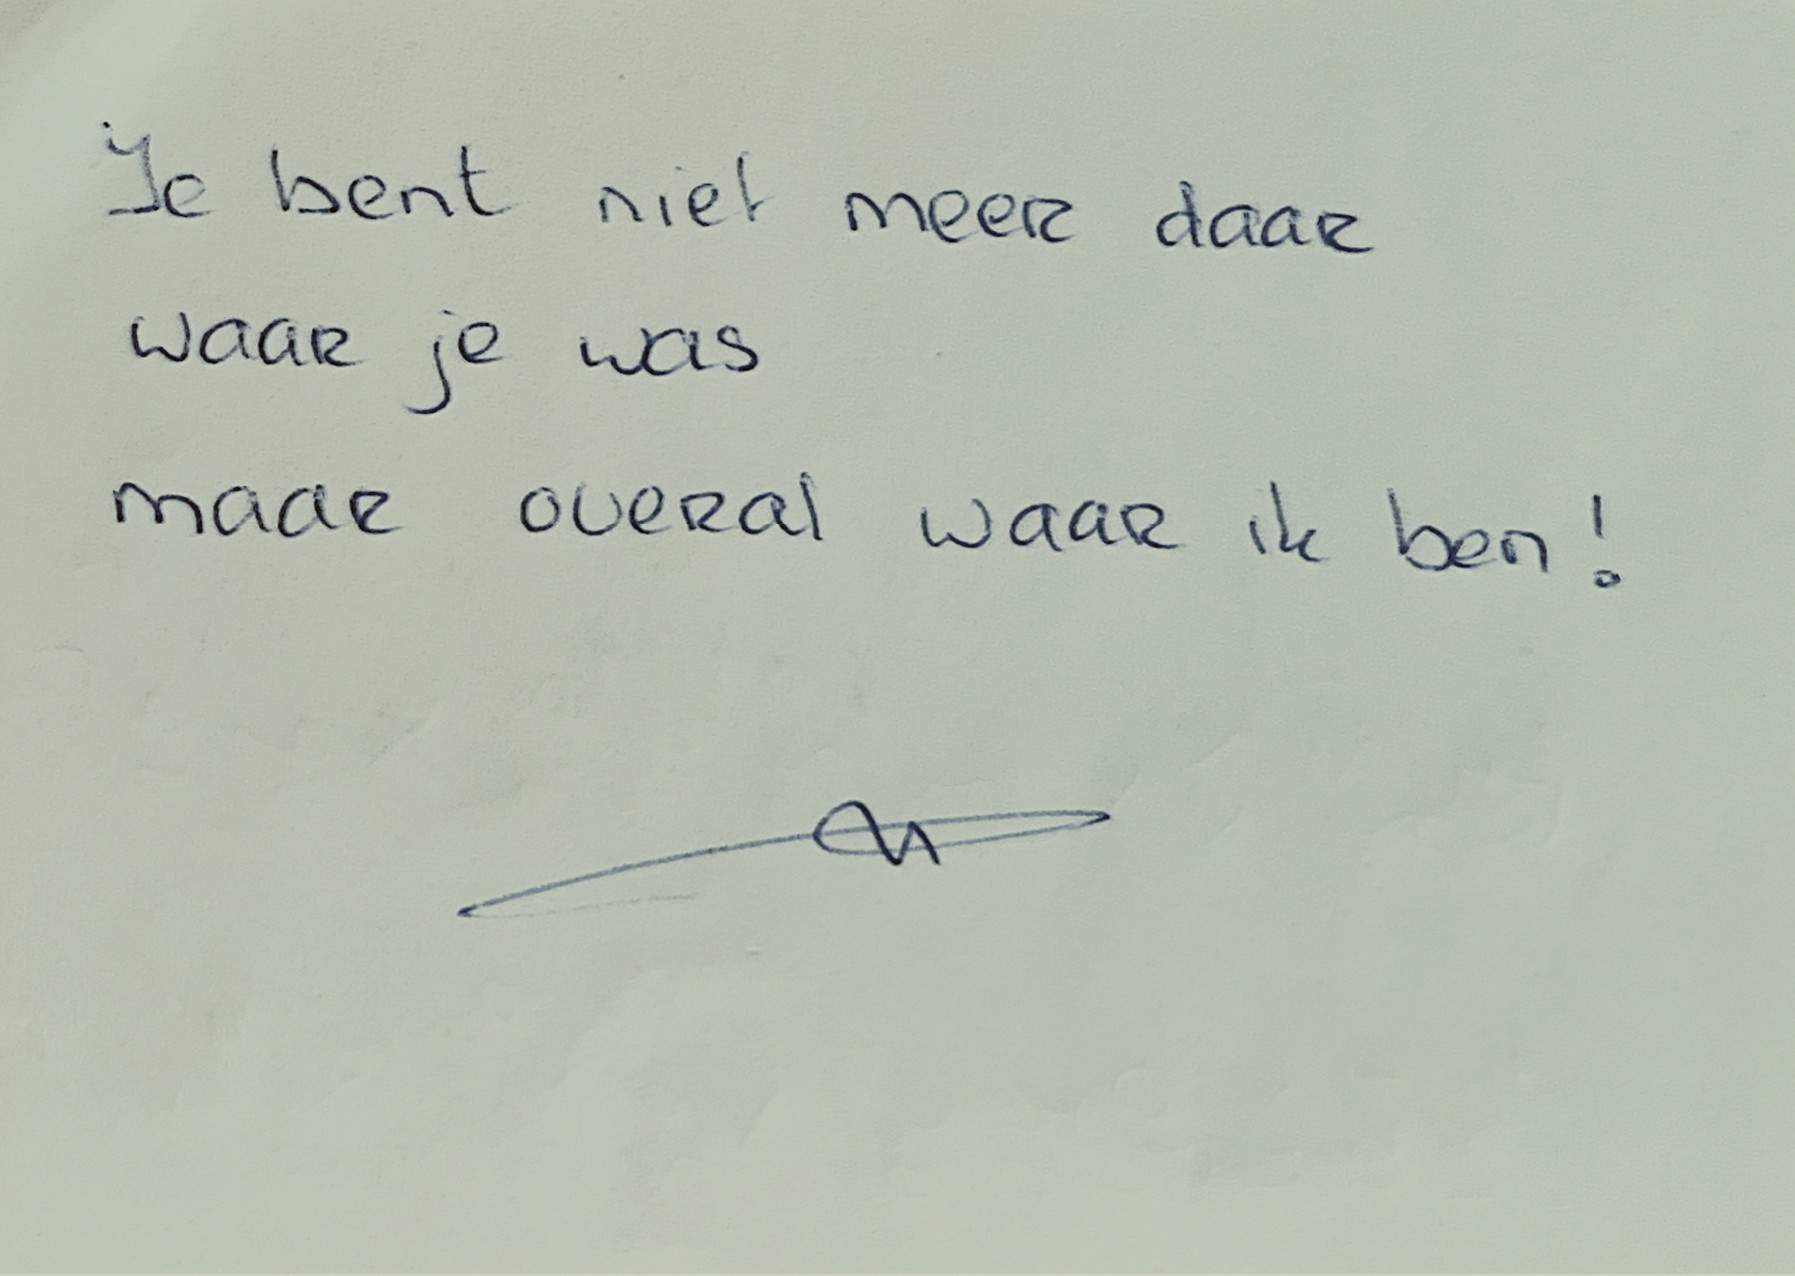 Je bent niet meer daar
waar je was
maar overal waar ik ben!